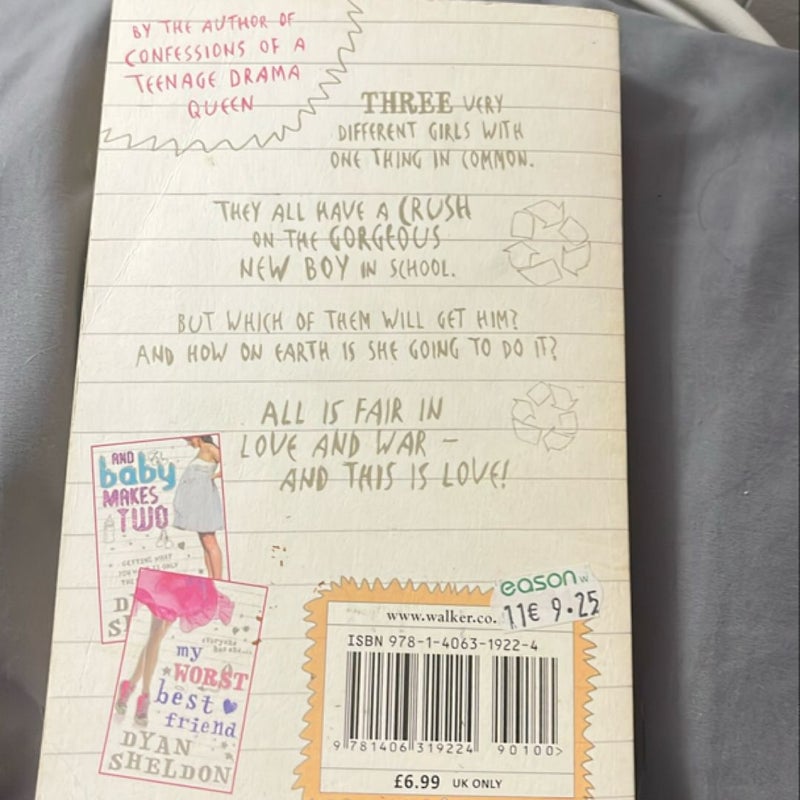 BY THE AUTHOR OF
CONFESSIONS OF A
TEENAGE DRAMA
QUEEN
THREE VERY
DIFFERENT GIRLS WITH
ONE THING IN COMMON.
THEY ALL HAVE A CRUSH
ON THE GORGEOUS
NEW BOY IN SCHOOL.
BUT WHICH OF THEM WILL GET HIM?
AND HOW ON EARTH IS SHE GOING TO DO IT?
ALL IS FAIR IN
LOVE AND WAR –
AND THIS IS LOVE!
AND
baby
MAKES
TWO
GETTING WHAT
my
WORST
best
friend
DYAN
SHELDON
eason
11€ 9.25
www.walker.co.
ISBN 978-1-4063-1922-4
9 781406 319224
90100>
£6.99 UK ONLY